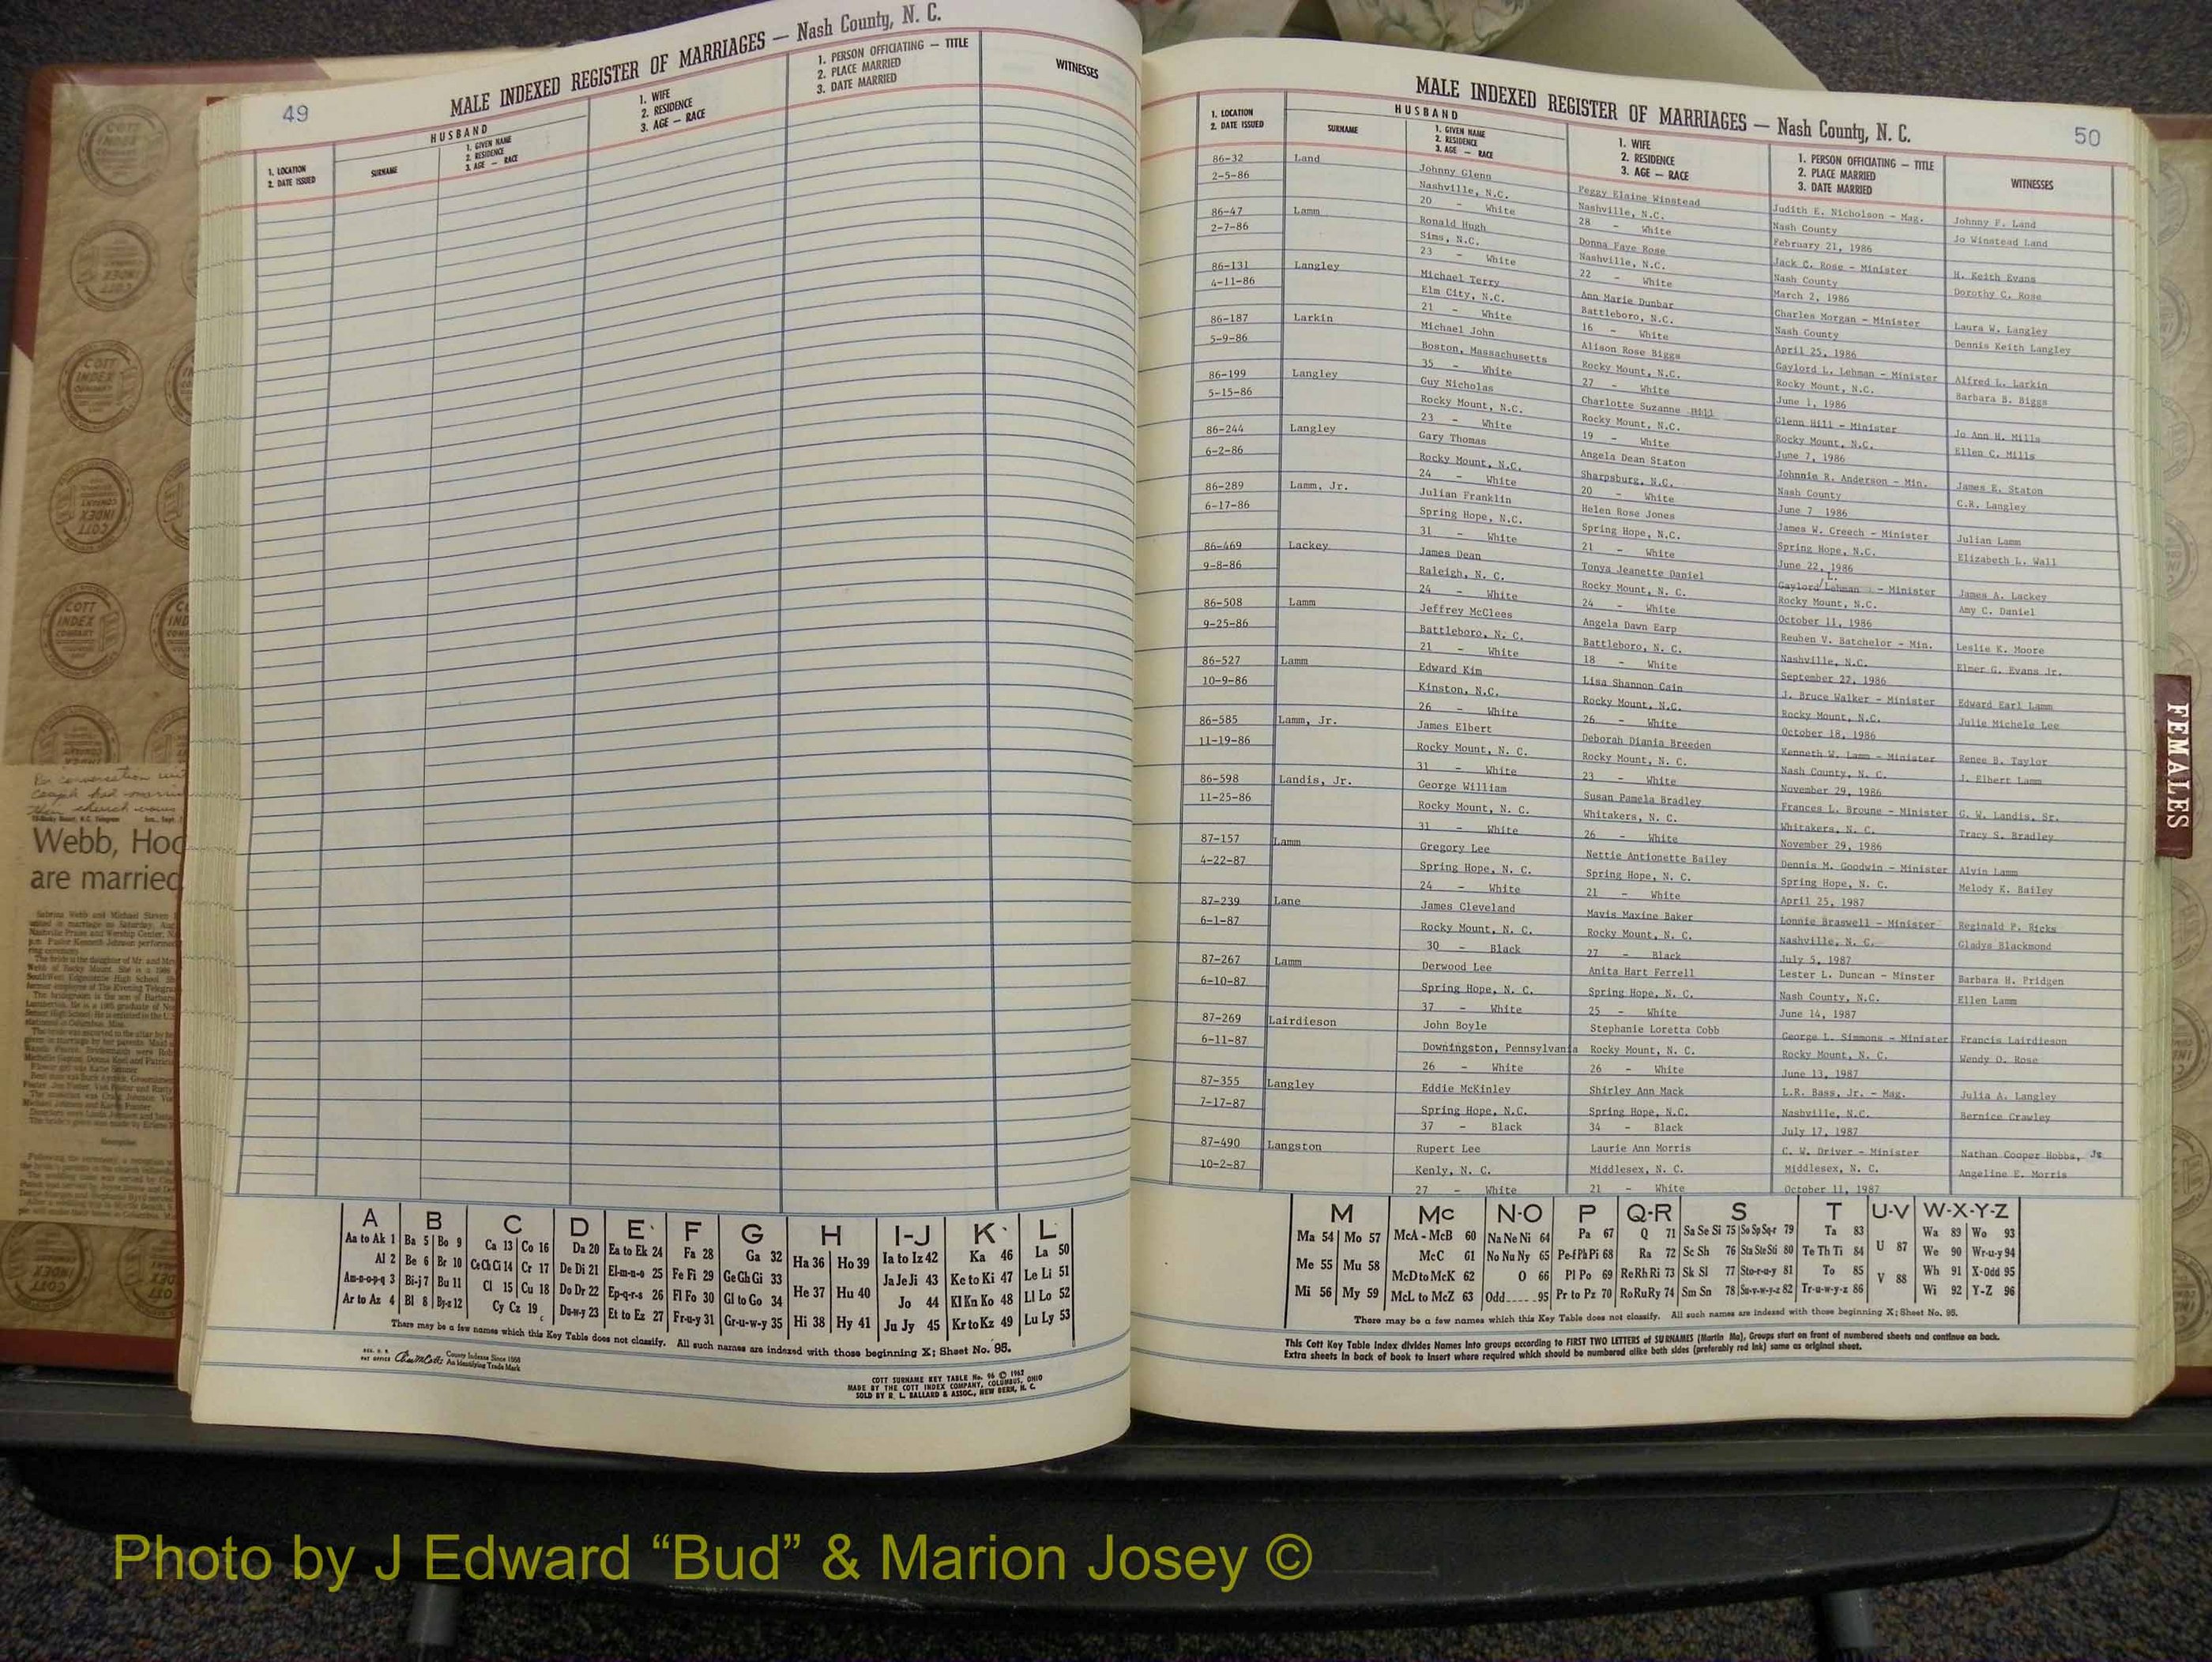 49
MALE INDEXED REGISTER OF MARRIAGES — Nash County, N. C.
1. LOCATION
2. DATE ISSUED
HUSBAND
SURNAME
1. GIVEN NAME
2. RESIDENCE
3. AGE — RACE
1. WIFE
2. RESIDENCE
3. AGE — RACE
1. PERSON OFFICIATING — TITLE
2. PLACE MARRIED
3. DATE MARRIED
WITNESSES
Webb, Hoc
are married
A B C D E F G H I-J K L
Aa to Ak 1 Ba 5 Bo 9 Ca 13 Co 16 Da 20 Ea to Ek 24 Fa 28 Ga 32 Ha 36 Ho 39 Ia to Iz 42 Ka 46 La 50
Al 2 Be 6 Br 10 Ce Ch Ci 14 Cr 17 De Di 21 El-m-n-o 25 Fe Fi 29 Ge Gh Gi 33 He 37 Hu 40 Ja Je Ji 43 Ke to Ki 47 Le Li 51
Am-n-o-p-q 3 Bi-j 7 Bu 11 Cl 15 Cu 18 Do Dr 22 Ep-q-r-s 26 Fl Fo 30 Gl to Go 34 Hi 38 Hy 41 Jo 44 Kl Kn Ko 48 Ll Lo 52
Ar to Az 4 Bl 8 By-z 12 Cy Cz 19 Du-w-y 23 Et to Ez 27 Fr-u-y 31 Gr-u-w-y 35 Ju Jy 45 Kr to Kz 49 Lu Ly 53
There may be a few names which this Key Table does not classify. All such names are indexed with those beginning X; Sheet No. 95.
County Indexes Since 1888
An Identifying Trade Mark
COTT SURNAME KEY TABLE No. 96 © 1962
MADE BY THE COTT INDEX COMPANY, COLUMBUS, OHIO
SOLD BY R. L. BALLARD & ASSOC., NEW BERN, N. C.
MALE INDEXED REGISTER OF MARRIAGES — Nash County, N. C.
50
1. LOCATION
2. DATE ISSUED
HUSBAND
SURNAME
1. GIVEN NAME
2. RESIDENCE
3. AGE — RACE
1. WIFE
2. RESIDENCE
3. AGE — RACE
1. PERSON OFFICIATING — TITLE
2. PLACE MARRIED
3. DATE MARRIED
WITNESSES
86-32 Land Johnny Glenn Peggy Elaine Winstead Judith E. Nicholson - Mag. Johnny F. Land
2-5-86 Nashville, N.C. Nashville, N.C. Nash County Jo Winstead Land
20 - White 28 - White February 21, 1986
86-47 Lamm Ronald Hugh Donna Faye Rose Jack C. Rose - Minister H. Keith Evans
2-7-86 Sims, N.C. Nashville, N.C. Nash County Dorothy C. Rose
23 - White 22 - White March 2, 1986
86-131 Langley Michael Terry Ann Marie Dunbar Charles Morgan - Minister Laura W. Langley
4-11-86 Elm City, N.C. Battleboro, N.C. Nash County Dennis Keith Langley
21 - White 16 - White April 25, 1986
86-187 Larkin Michael John Alison Rose Biggs Gaylord L. Lehman - Minister Alfred L. Larkin
5-9-86 Boston, Massachusetts Rocky Mount, N.C. Rocky Mount, N.C. Barbara B. Biggs
35 - White 27 - White June 1, 1986
86-199 Langley Guy Nicholas Charlotte Suzanne Hill Glenn Hill - Minister Jo Ann H. Mills
5-15-86 Rocky Mount, N.C. Rocky Mount, N.C. Rocky Mount, N.C. Ellen C. Mills
23 - White 19 - White June 7, 1986
86-244 Langley Gary Thomas Angela Dean Staton Johnnie R. Anderson - Min. James E. Staton
6-2-86 Rocky Mount, N.C. Sharpsburg, N.C. Nash County C.R. Langley
24 - White 20 - White June 7 1986
86-289 Lamm, Jr. Julian Franklin Helen Rose Jones James W. Creech - Minister Julian Lamm
6-17-86 Spring Hope, N.C. Spring Hope, N.C. Spring Hope, N.C. Elizabeth L. Wall
31 - White 21 - White June 22, 1986
86-469 Lackey James Dean Tonya Jeanette Daniel Gaylord L. Lehman - Minister James A. Lackey
9-8-86 Raleigh, N. C. Rocky Mount, N. C. Rocky Mount, N.C. Amy C. Daniel
24 - White 24 - White October 11, 1986
86-508 Lamm Jeffrey McClees Angela Dawn Earp Reuben V. Batchelor - Min. Leslie K. Moore
9-25-86 Battleboro, N. C. Battleboro, N. C. Nashville, N.C. Elmer G. Evans Jr.
21 - White 18 - White September 27, 1986
86-527 Lamm Edward Kim Lisa Shannon Cain J. Bruce Walker - Minister Edward Earl Lamm
10-9-86 Kinston, N.C. Rocky Mount, N.C. Rocky Mount, N.C. Julie Michele Lee
26 - White 26 - White October 18, 1986
86-585 Lamm, Jr. James Elbert Deborah Diania Breeden Kenneth W. Lamm - Minister Renee B. Taylor
11-19-86 Rocky Mount, N. C. Rocky Mount, N. C. Nash County, N. C. J. Elbert Lamm
31 - White 23 - White November 29, 1986
86-598 Landis, Jr. George William Susan Pamela Bradley Frances L. Broune - Minister G. W. Landis, Sr.
11-25-86 Rocky Mount, N. C. Whitakers, N. C. Whitakers, N. C. Tracy S. Bradley
31 - White 26 - White November 29, 1986
87-157 Lamm Gregory Lee Nettie Antionette Bailey Dennis M. Goodwin - Minister Alvin Lamm
4-22-87 Spring Hope, N. C. Spring Hope, N. C. Spring Hope, N. C. Melody K. Bailey
24 - White 21 - White April 25, 1987
87-239 Lane James Cleveland Mavis Maxine Baker Lonnie Braswell - Minister Reginald P. Ricks
6-1-87 Rocky Mount, N. C. Rocky Mount, N. C. Nashville, N. C. Gladys Blackmond
30 - Black 27 - Black July 5, 1987
87-267 Lamm Derwood Lee Anita Hart Ferrell Lester L. Duncan - Minster Barbara H. Pridgen
6-10-87 Spring Hope, N. C. Spring Hope, N. C. Nash County, N.C. Ellen Lamm
37 - White 25 - White June 14, 1987
87-269 Lairdieson John Boyle Stephanie Loretta Cobb George L. Simmons - Minister Francis Lairdieson
6-11-87 Downingston, Pennsylvania Rocky Mount, N. C. Rocky Mount, N. C. Wendy O. Rose
26 - White 26 - White June 13, 1987
87-355 Langley Eddie McKinley Shirley Ann Mack L.R. Bass, Jr. - Mag. Julia A. Langley
7-17-87 Spring Hope, N.C. Spring Hope, N.C. Nashville, N.C. Bernice Crawley
37 - Black 34 - Black July 17, 1987
87-490 Langston Rupert Lee Laurie Ann Morris C. W. Driver - Minister Nathan Cooper Hobbs, Jr
10-2-87 Kenly, N. C. Middlesex, N. C. Middlesex, N. C. Angeline E. Morris
27 - White 21 - White October 11, 1987
FEMALES
M Mc N-O P Q-R S T U-V W-X-Y-Z
Ma 54 Mo 57 McA - McB 60 Na Ne Ni 64 Pa 67 Q 71 Sa Se Si 75 So Sp Sq-r 79 Ta 83 U 87 Wa 89 Wo 93
Me 55 Mu 58 McC 61 No Nu Ny 65 Pe-f Ph Pi 68 Ra 72 Sc Sh 76 Sta Ste Sti 80 Te Th Ti 84 V 88 We 90 Wr-u-y 94
Mi 56 My 59 McD to McK 62 O 66 Pl Po 69 Re Rh Ri 73 Sk Sl 77 Sto-r-u-y 81 To 85 Wh 91 X-Odd 95
McL to McZ 63 Odd 95 Pr to Pz 70 Ro Ru Ry 74 Sm Sn 78 Su-v-w-y-z 82 Tr-u-w-y-z 86 Wi 92 Y-Z 96
There may be a few names which this Key Table does not classify. All such names are indexed with those beginning X; Sheet No. 95.
This Cott Key Table Index divides Names into groups according to FIRST TWO LETTERS of SURNAMES (Martin Ma), Groups start on front of numbered sheets and continue on back.
Extra sheets in back of book to insert where required which should be numbered alike both sides (preferably red ink) same as original sheet.
Photo by J Edward “Bud” & Marion Josey ©